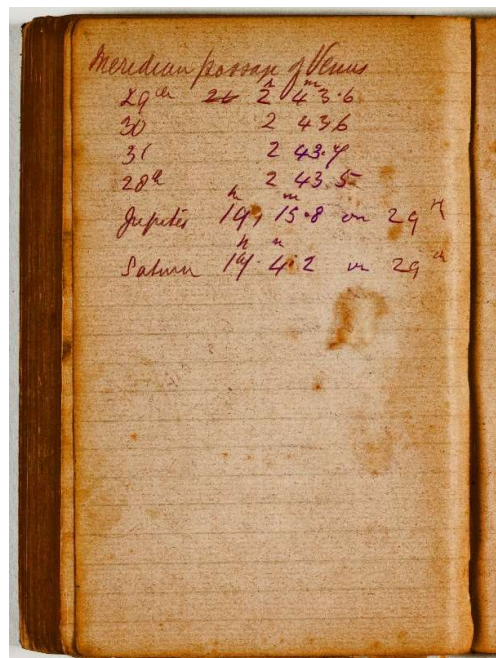 Meridian passage of Venus
29th 26 2h 43m.6
30 2 43.6
31 2 43.7
28th 2 43.5
Jupiter 14h, 15m.8 on 29th
Saturn 14h. 4m.2 on 29th